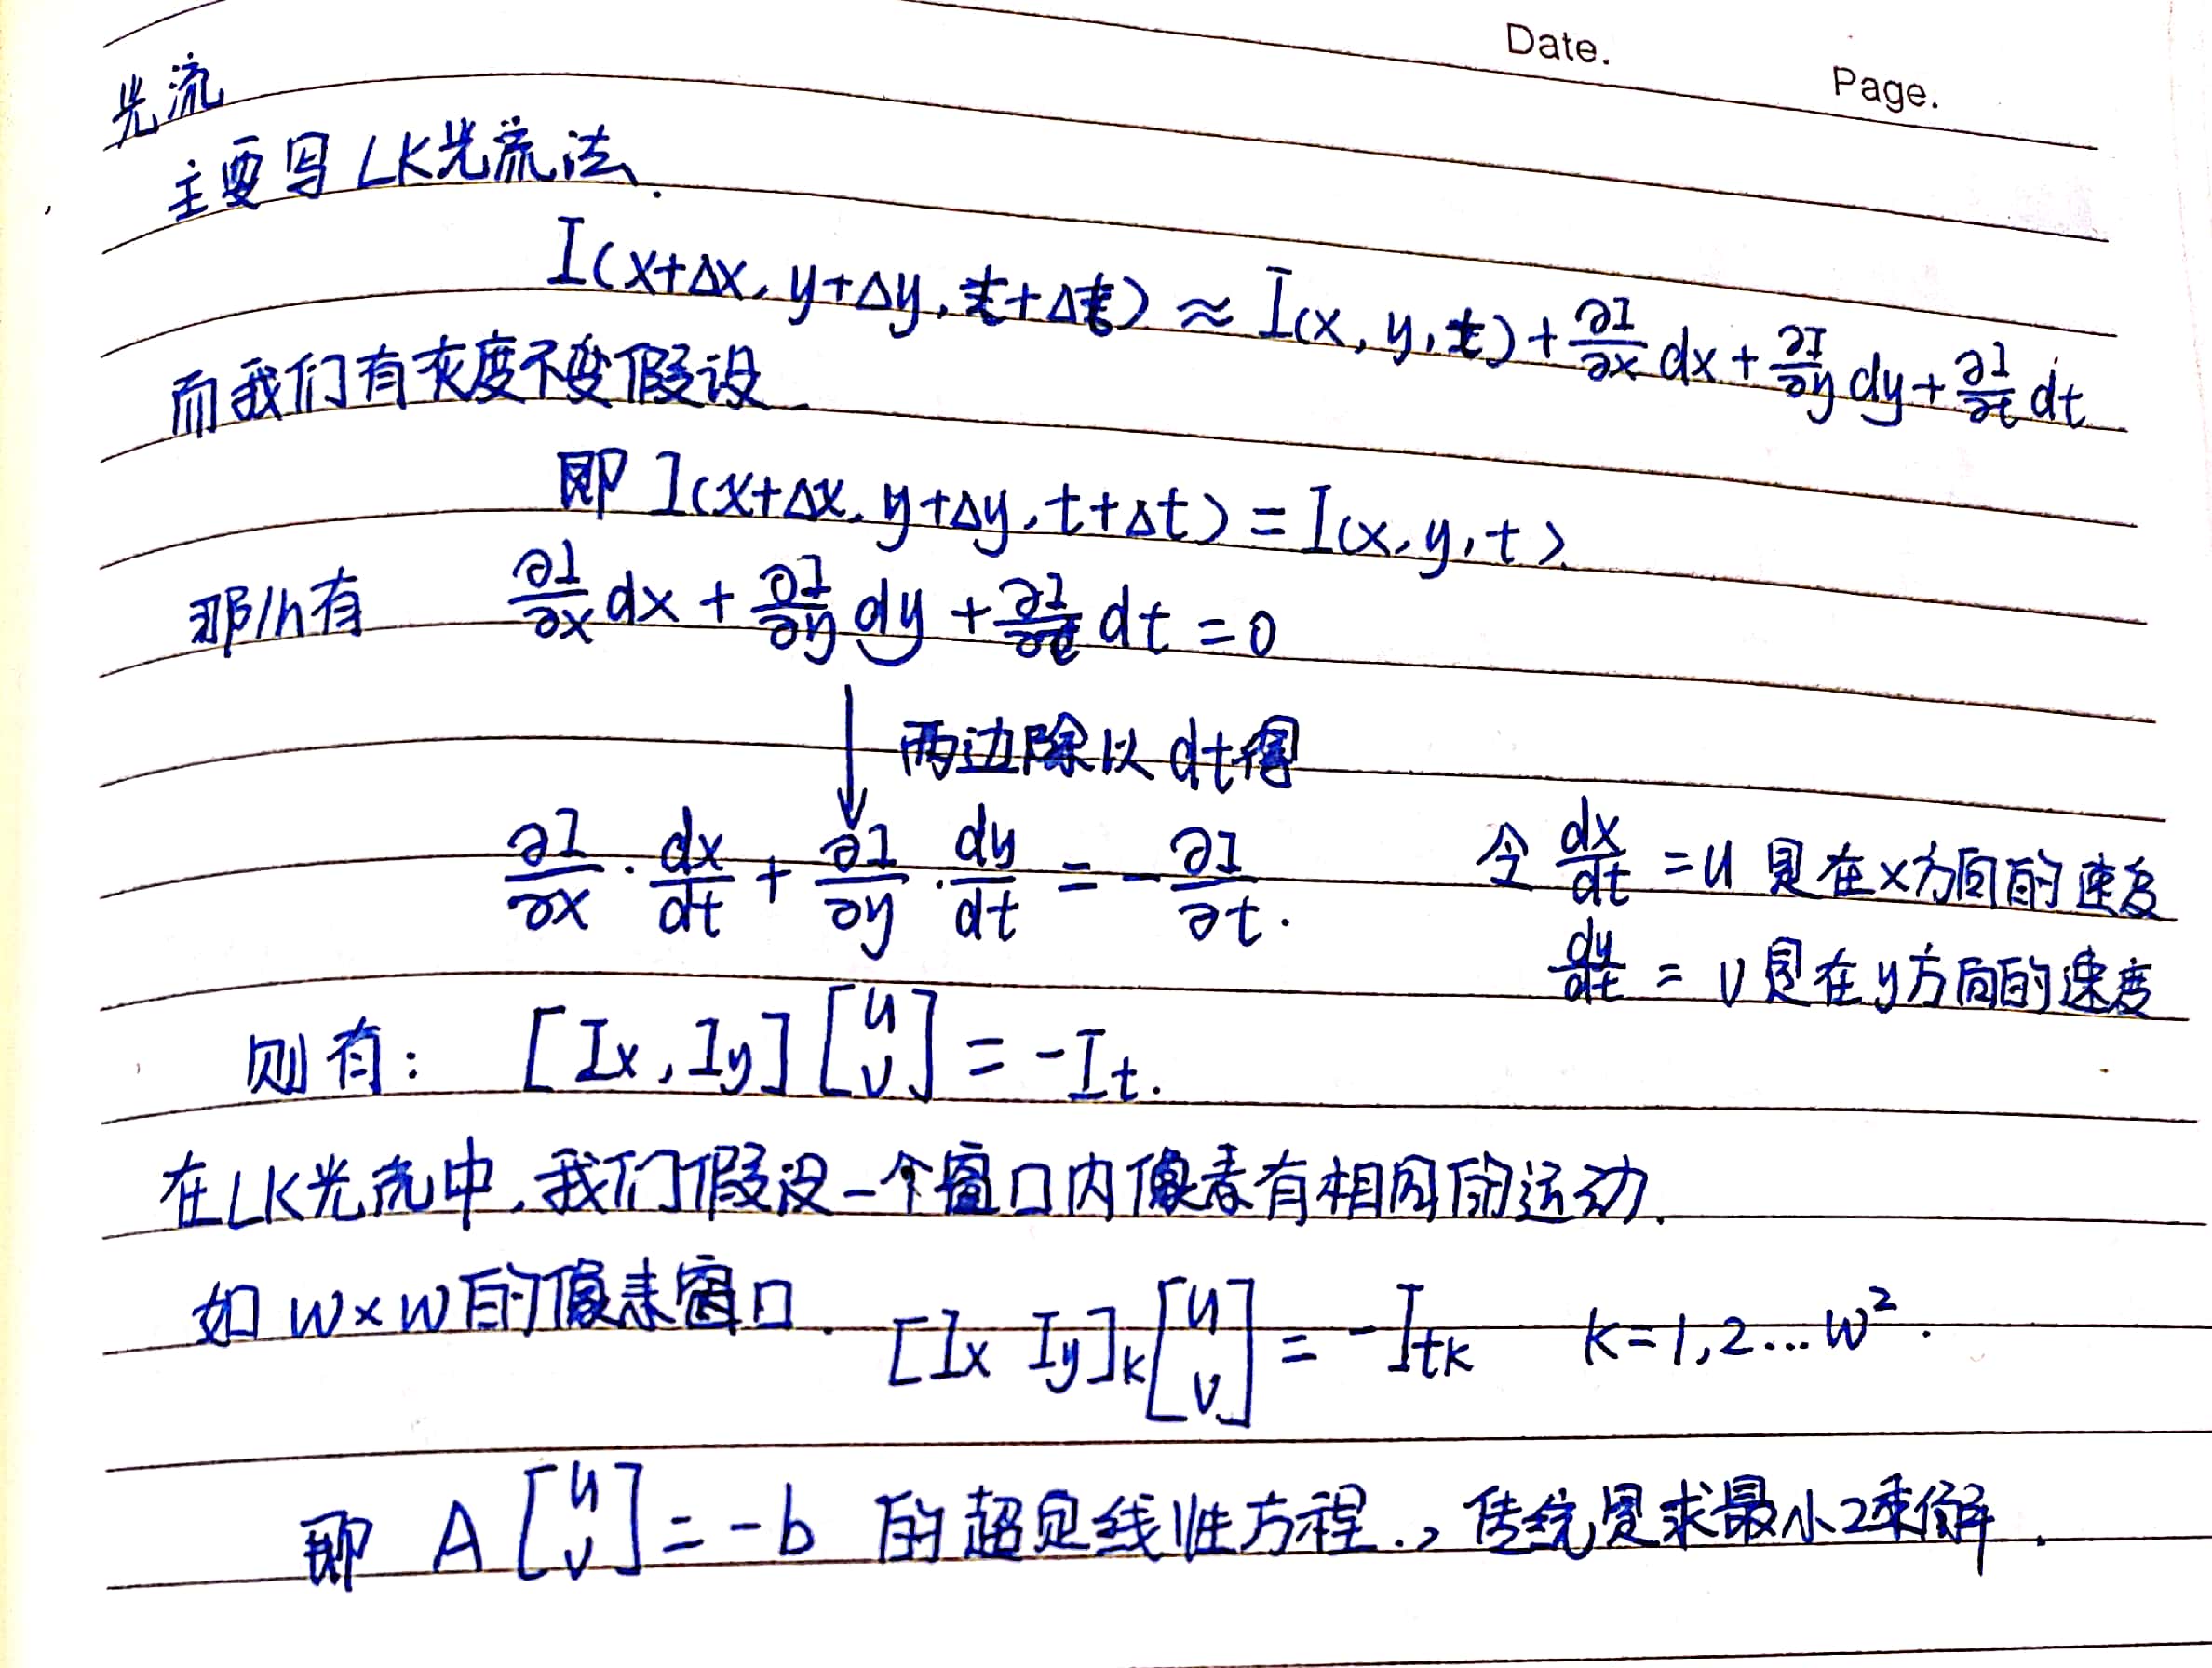 Date.
Page.
光流
主要写LK光流法.
I(x+Δx, y+Δy, t+Δt) ≈ I(x, y, t) + ∂I/∂x dx + ∂I/∂y dy + ∂I/∂t dt
而我们有灰度不变假设
即 I(x+Δx, y+Δy, t+Δt) = I(x, y, t)
那么有 ∂I/∂x dx + ∂I/∂y dy + ∂I/∂t dt = 0
↓ 两边除以dt得
∂I/∂x · dx/dt + ∂I/∂y · dy/dt = -∂I/∂t. 令 dx/dt = u 是在x方向的速度
dy/dt = v 是在y方向的速度
则有: [Ix, Iy] [u v] = -It.
在LK光流中,我们假设一个窗口内像素有相同的运动.
如 w×w 的像素窗口. [Ix Iy]k [u v] = -Itk k=1,2...w².
即 A [u v] = -b 的超定线性方程., 传统是求最小2乘解.